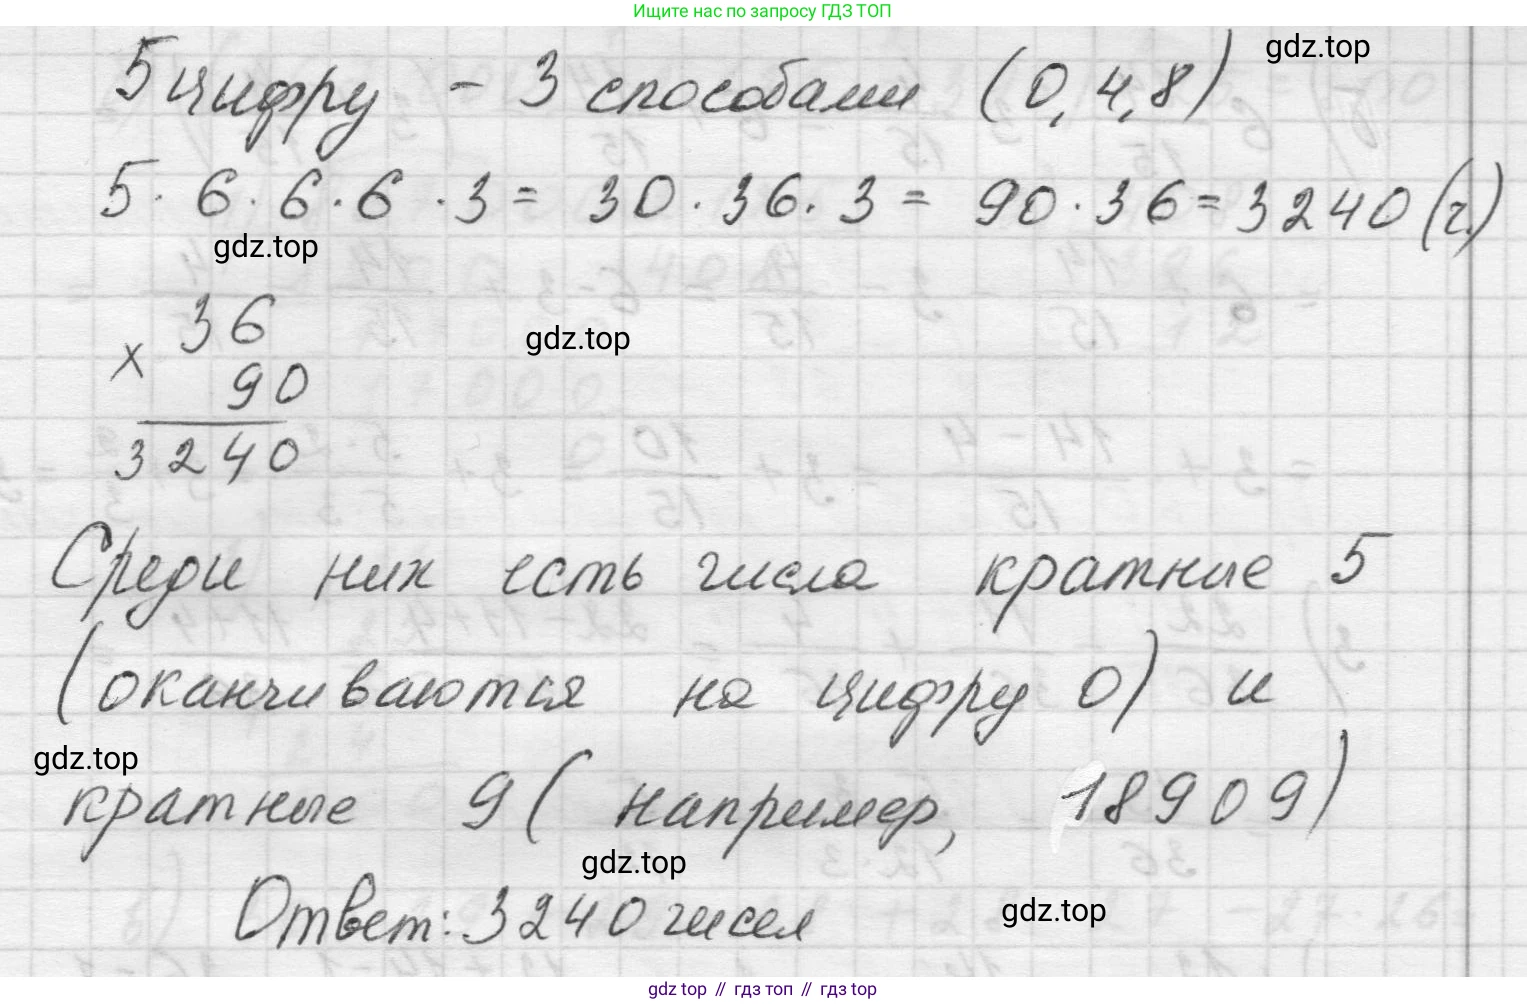 Ищите нас по запросу ГДЗ ТОП
gdz.top
5 цифру - 3 способами (0, 4, 8)
5 · 6 · 6 · 6 · 3 = 30 · 36 · 3 = 90 · 36 = 3240 (ч.)
gdz.top
36
gdz.top
×
90
3240
Среди них есть числа кратные 5
(оканчиваются на цифру 0) и
gdz.top
кратные 9 ( например, 18909)
gdz.top
Ответ: 3240 чисел
gdz.top
gdz top // гдз топ // gdz top